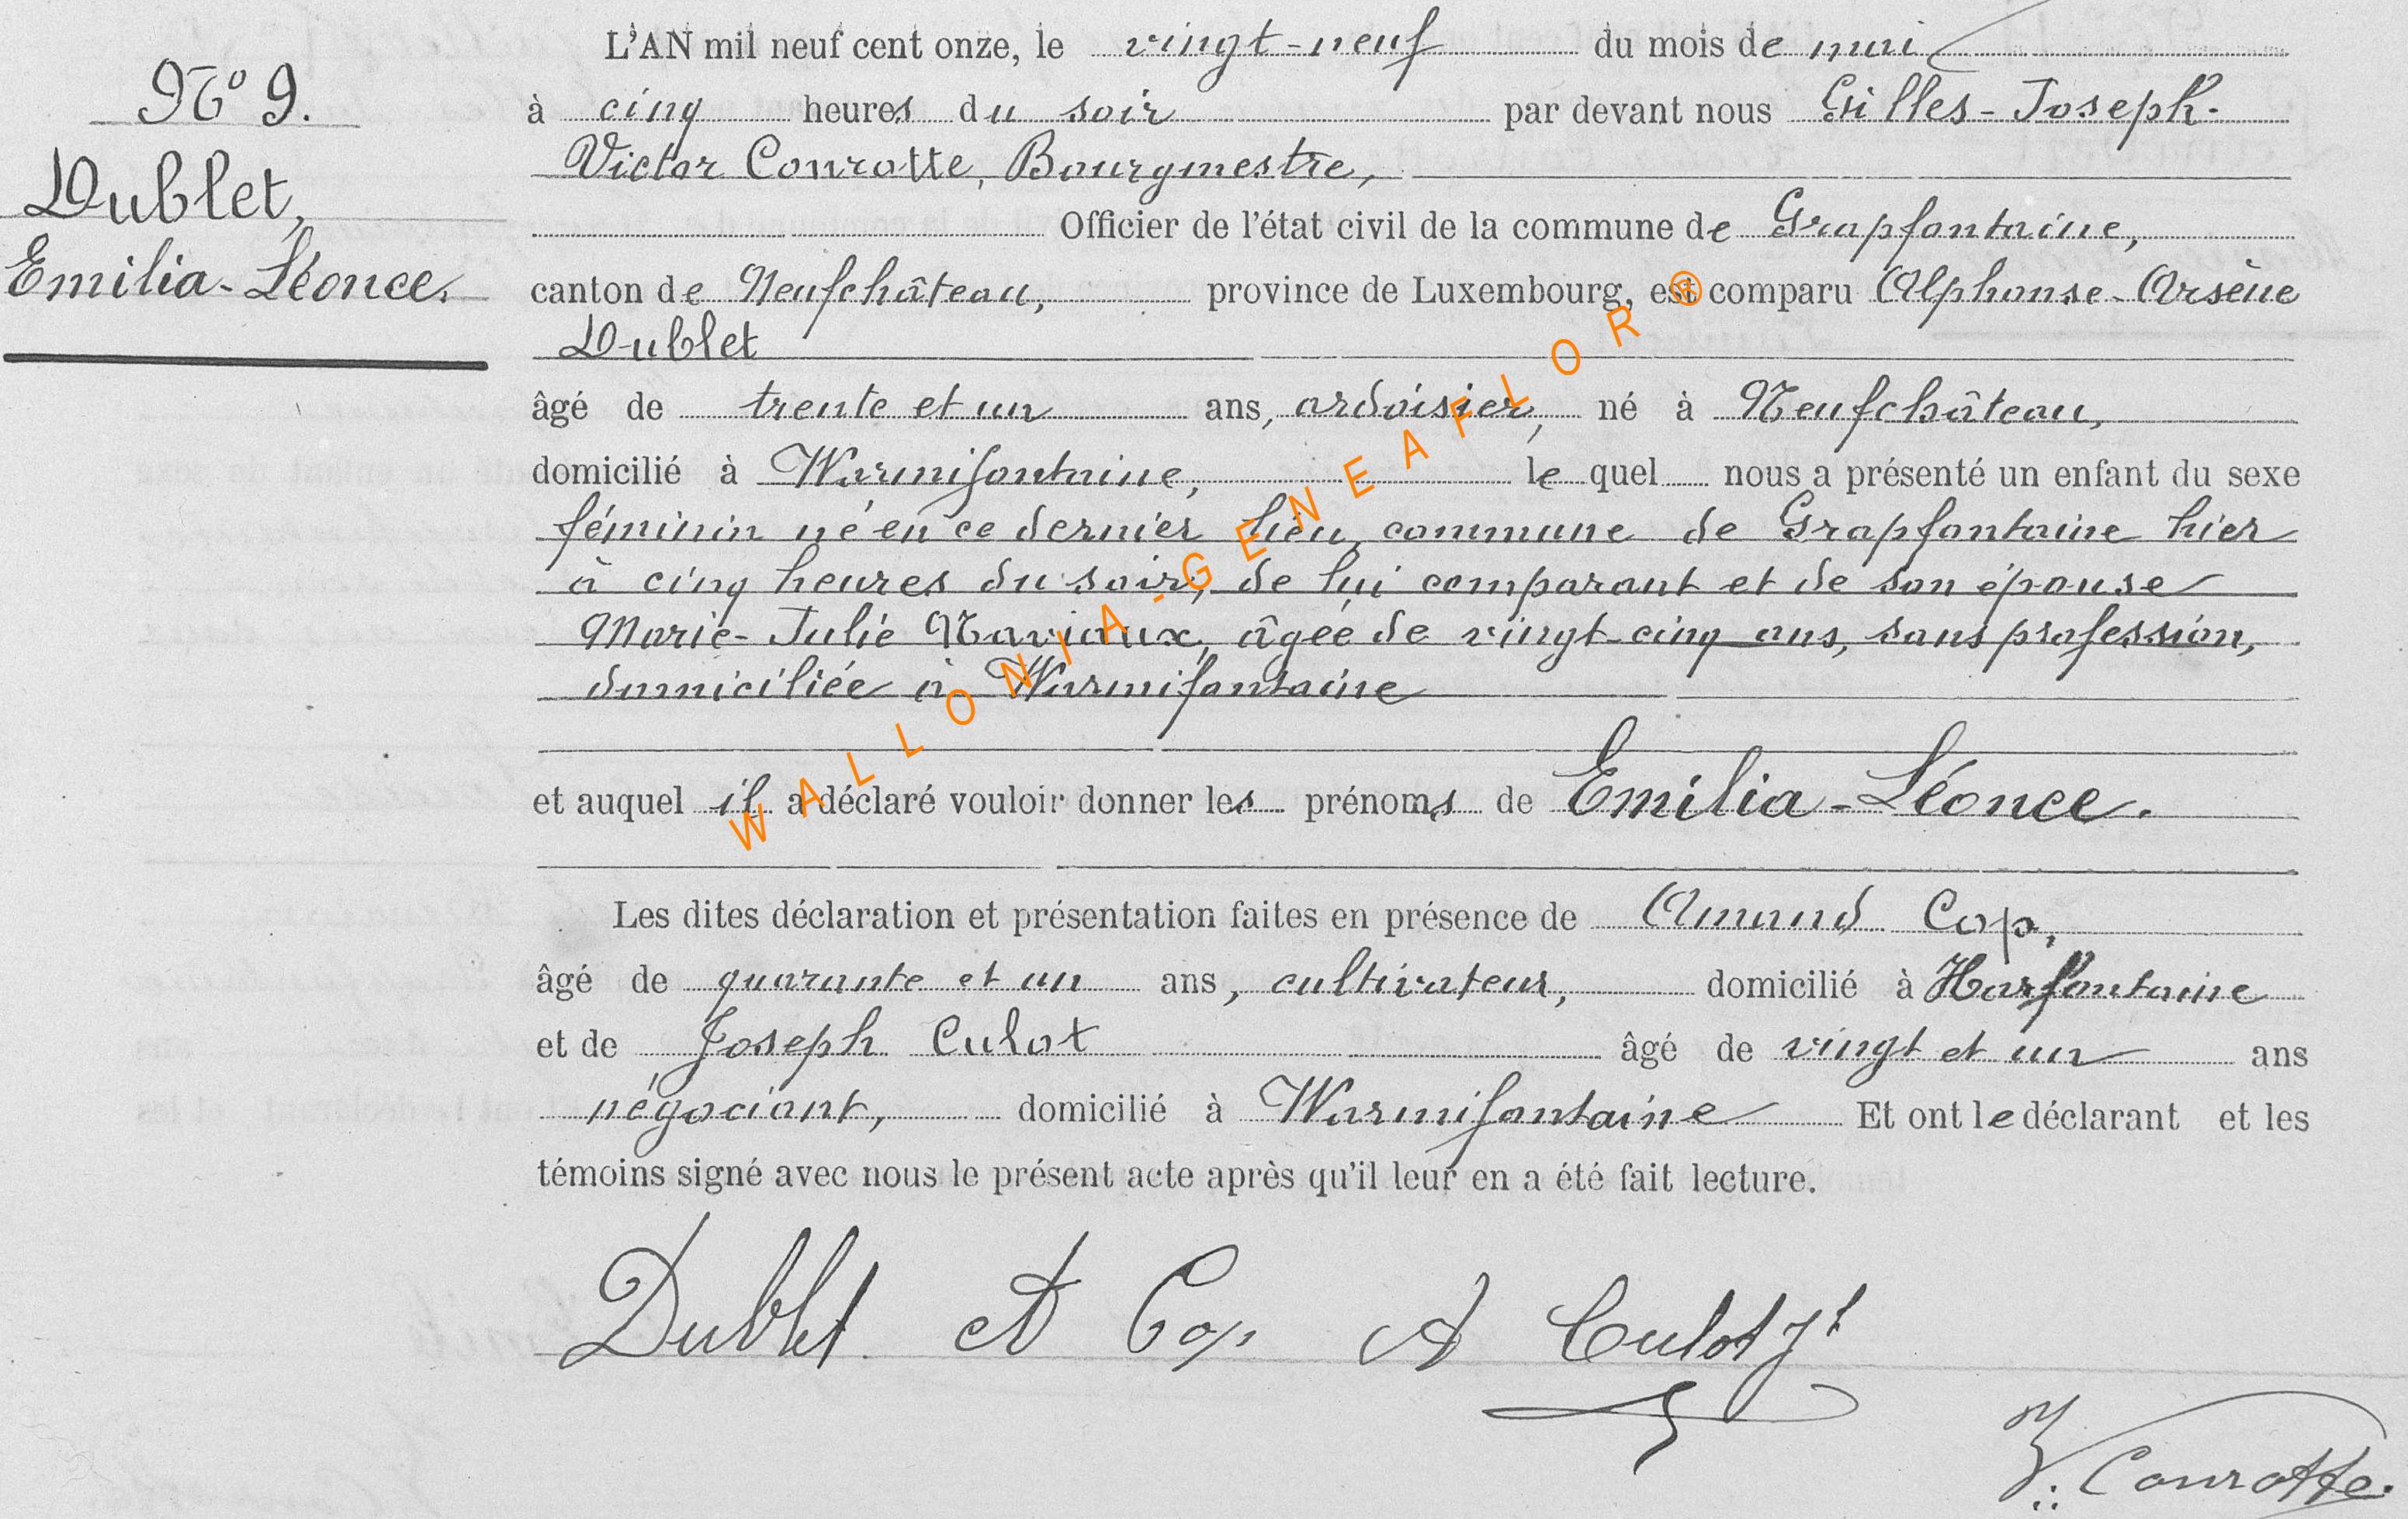 N° 9.
Dublet,
Emilia-Léonce.
L'AN mil neuf cent onze, le vingt-neuf du mois de mai
à cinq heures du soir par devant nous Gilles-Joseph-
Victor Conrotte, Bourgmestre,
Officier de l'état civil de la commune de Grapfontaine,
canton de Neufchâteau, province de Luxembourg, est comparu Alphonse-Arsène
Dublet
âgé de trente et un ans, ardoisier, né à Neufchâteau,
domicilié à Warmifontaine, lequel nous a présenté un enfant du sexe
féminin né en ce dernier lieu, commune de Grapfontaine hier
à cinq heures du soir, de lui comparant et de son épouse
Marie-Julie Naviaux, âgée de vingt-cinq ans, sans profession,
domiciliée à Warmifontaine
et auquel il a déclaré vouloir donner les prénoms de Emilia-Léonce.
Les dites déclaration et présentation faites en présence de Amand Cop,
âgé de quarante et un ans, cultivateur, domicilié à Harfontaine
et de Joseph Culot âgé de vingt et un ans
négociant, domicilié à Warmifontaine Et ont le déclarant et les
témoins signé avec nous le présent acte après qu'il leur en a été fait lecture.
Dublet A Cop A Culot Jh
V. Conrotte.
WALLONIA-GENEAFLOR®